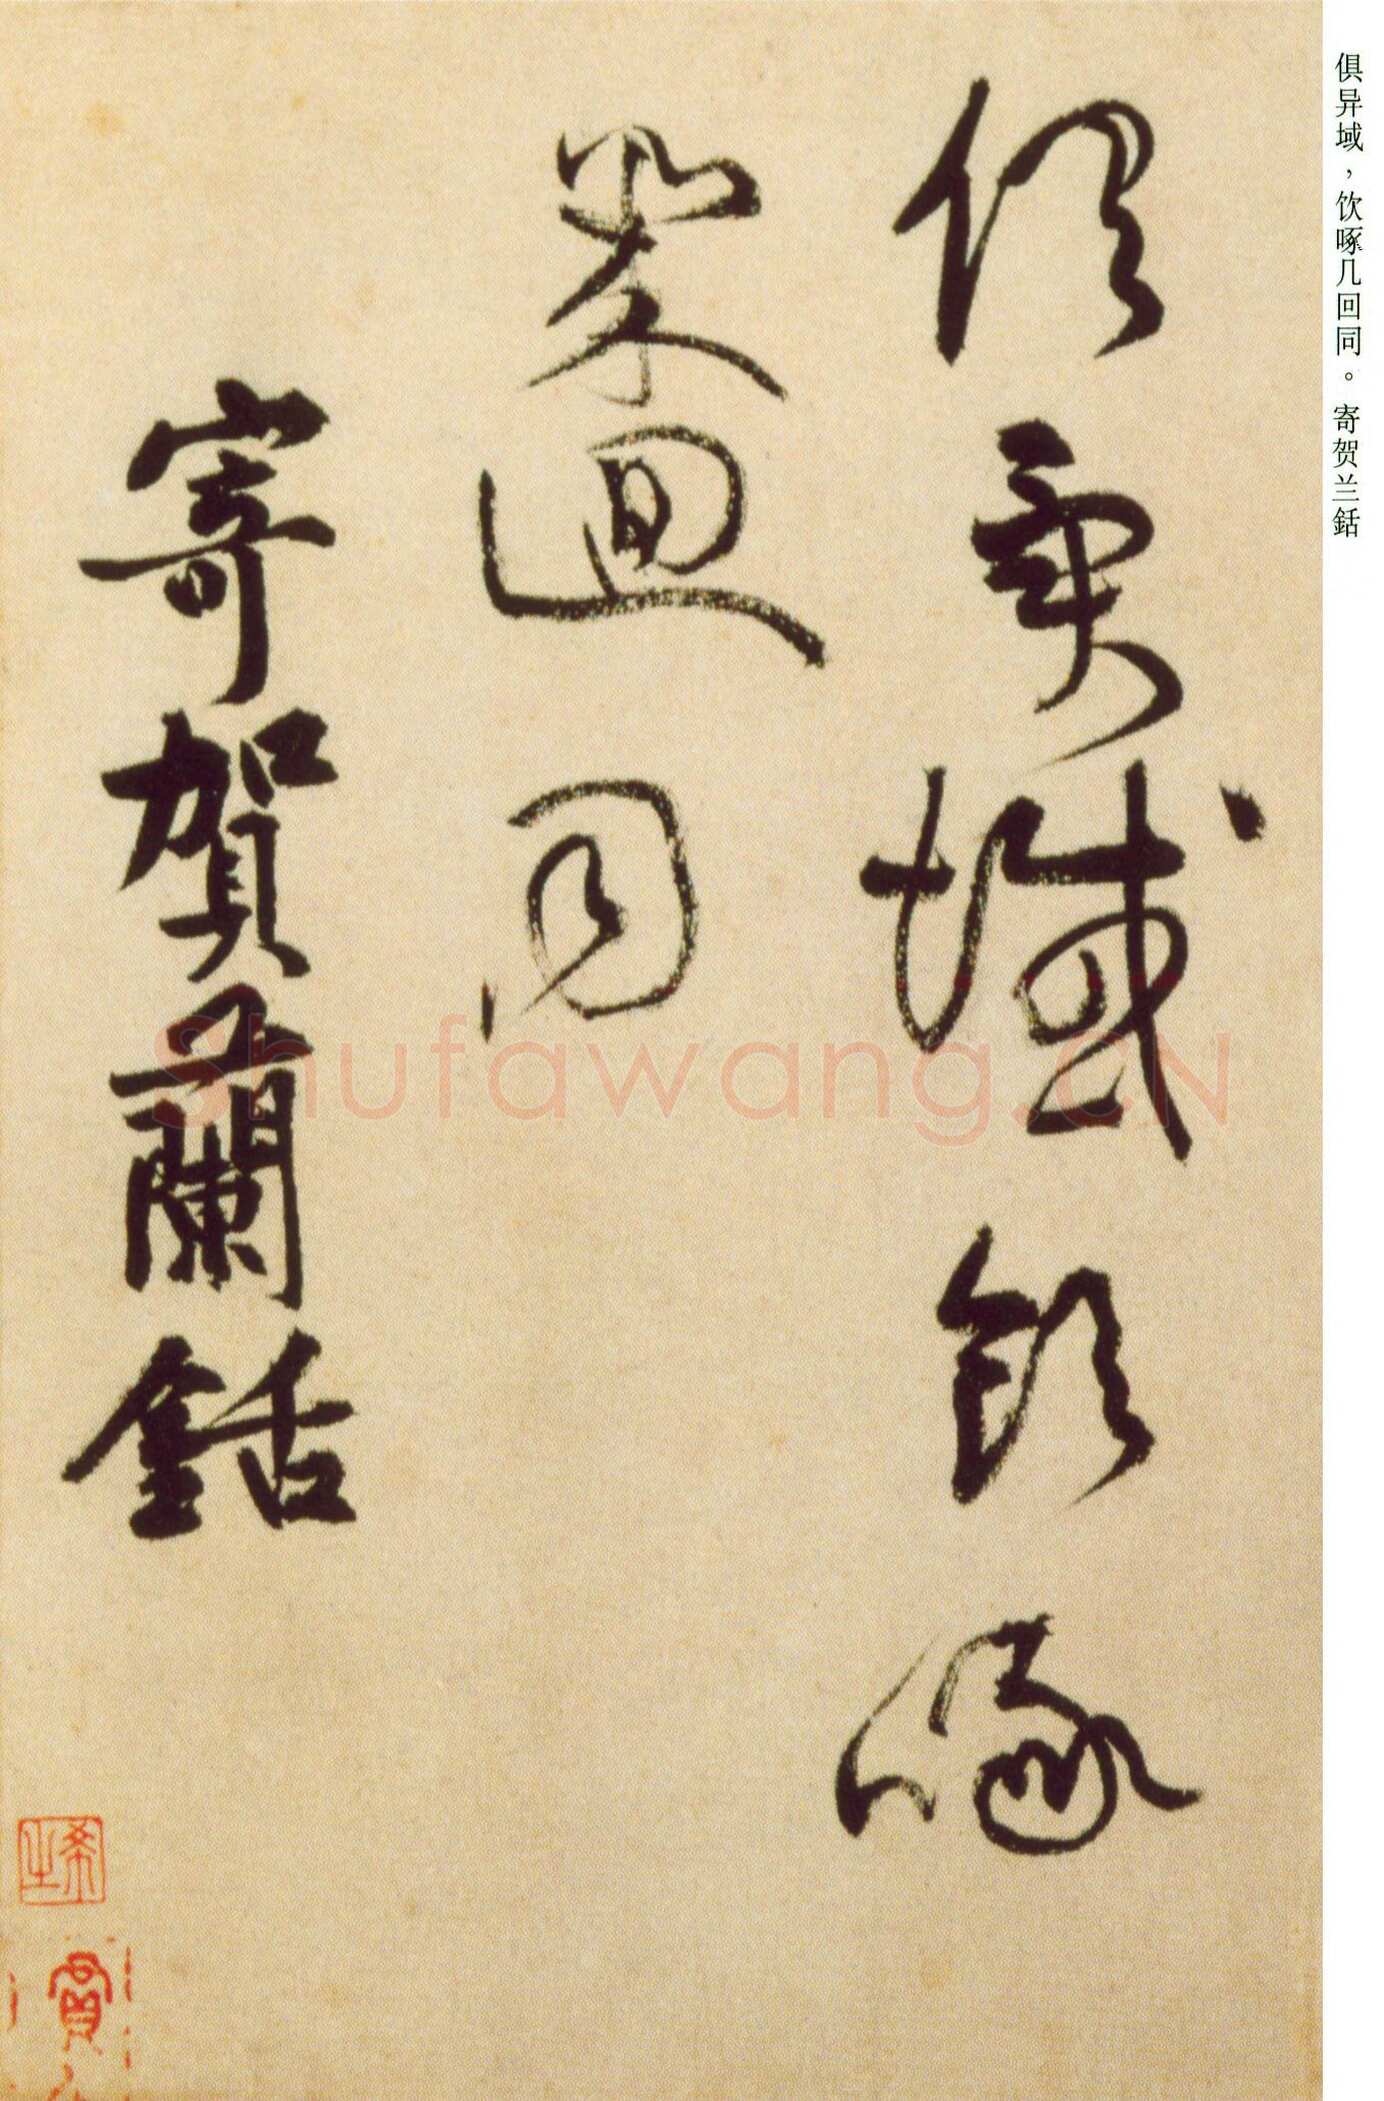 俱异域，饮啄几回同。寄贺兰銛
俱異域飲啄
幾迴同
寄賀蘭銛
Shufawang.CN